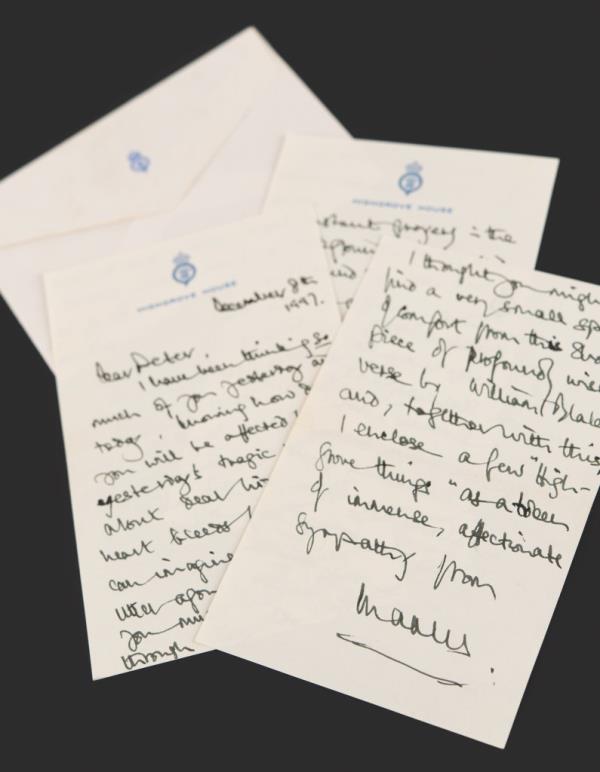 HIGHGROVE HOUSE
December 8th
1997.
Dear Peter
I have been thinking so
much of you yesterday and
today, knowing how
you will be affected
yesterday's tragic
about dear
heart bleeds
can imagine
utter
you
through
HIGHGROVE HOUSE
prayers in the
I thought you might
find a very small
of comfort from this
piece of profound
verse by William Blake
and, together with this
I enclose a few "High-
grove things" as a token
of immense, affectionate
sympathy from
Charles